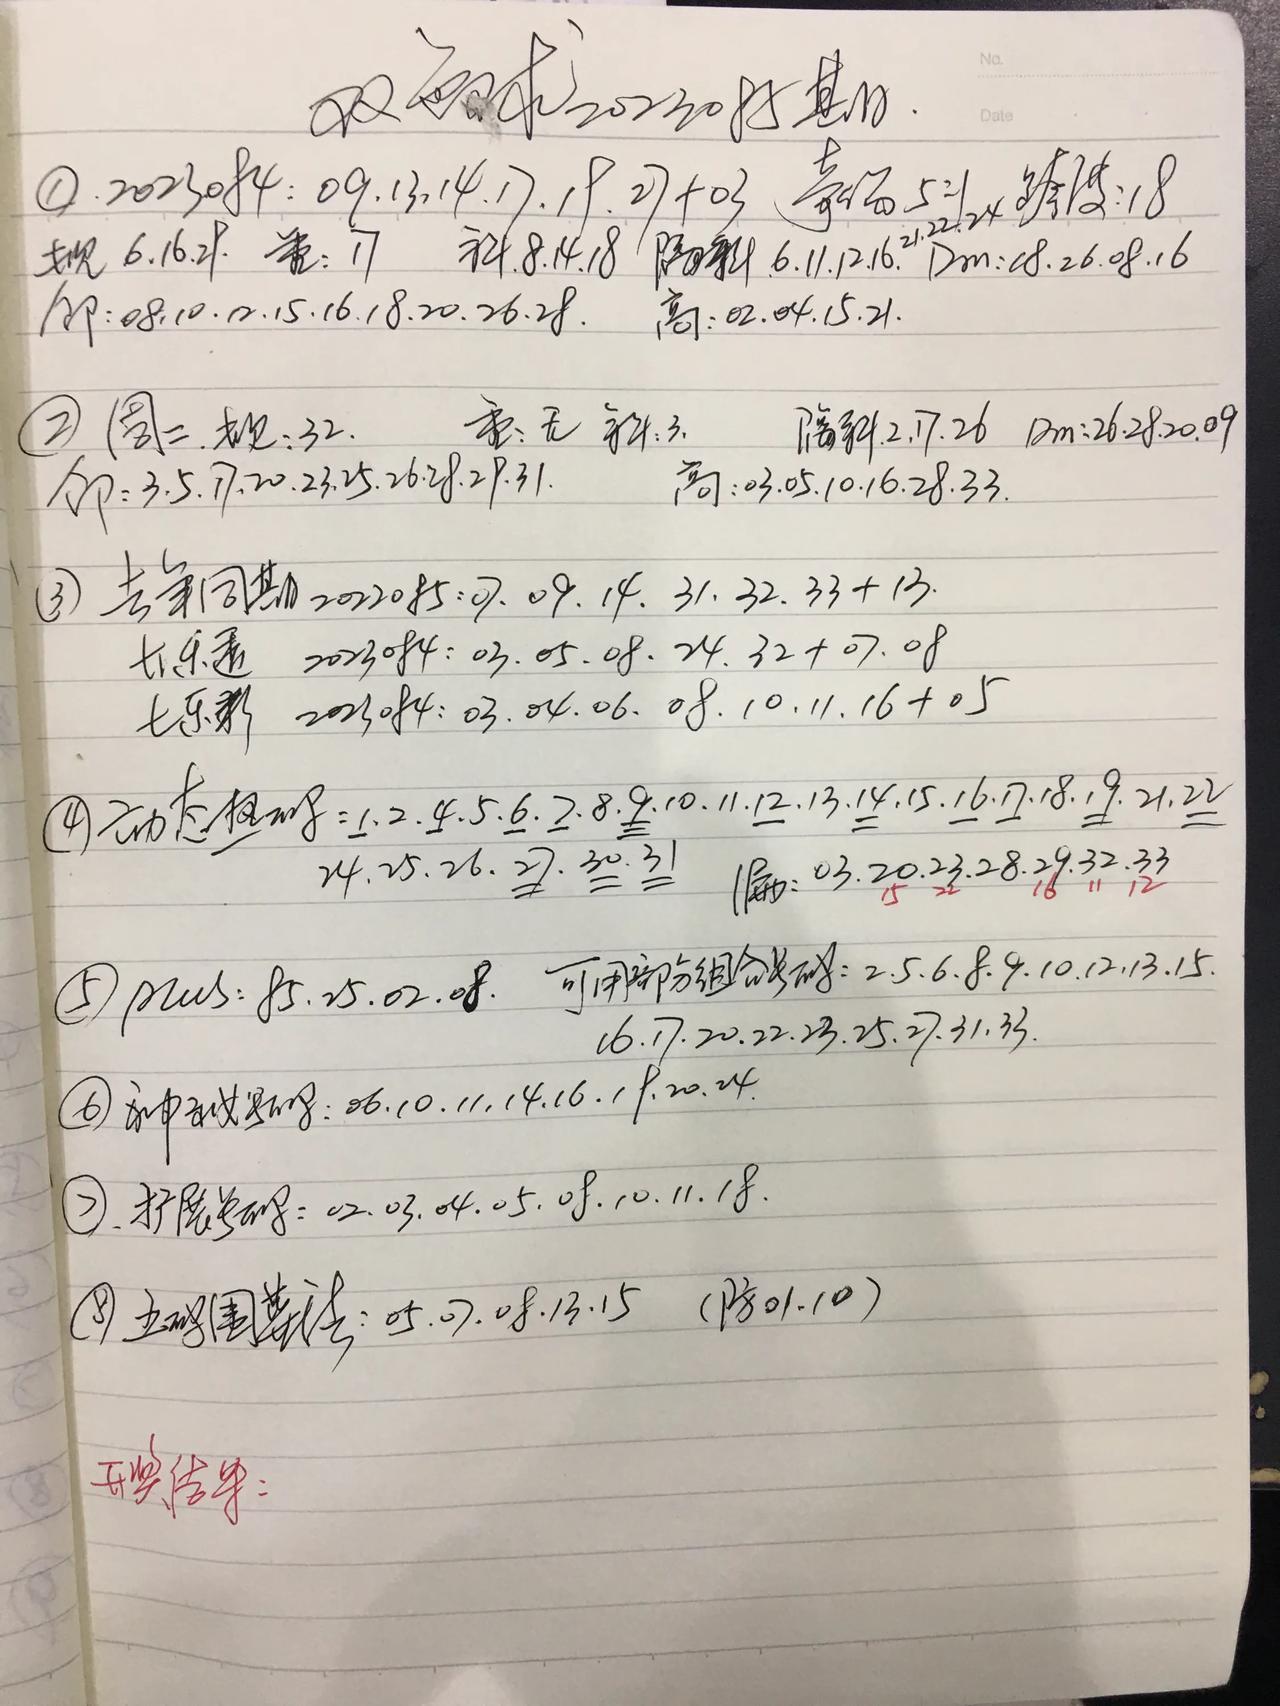 双色球2023085期.
No.
Date
① 2023084: 09.13.14.17.19.27+03 奇偶5:1 跨度:18
规 6.16.29 重: 17 斜.8.14.18 隔斜 6.11.12.16.21.22.24 Dm:18.26.08.16
邻:08.10.12.15.16.18.20.26.28. 高:02.04.15.21.
② 周二. 规:32. 重:无 斜:3. 隔斜.2.17.26 Dm:26.28.20.09
邻:3.5.17.20.23.25.26.28.29.31. 高:03.05.10.16.28.33.
③ 去年同期2022085:07.09.14.31.32.33+13.
七乐透 2023084:03.05.08.24.32+07.08
七乐彩 2023084:03.04.06.08.10.11.16+05
④ 动态热码:1.2.4.5.6.7.8.9.10.11.12.13.14.15.16.17.18.19.21.22
24.25.26.27.30.31 漏:03.20.23.28.29.32.33
15 22 16 11 12
⑤ plus:85.25.02.08. 可用部分组合号码:2.5.6.8.9.10.12.13.15.
16.17.20.22.23.25.27.31.33.
⑥ 神秘号码:06.10.11.14.16.19.20.24.
⑦.扩展号码:02.03.04.05.08.10.11.18.
⑧ 五码围蓝法:05.07.08.13.15 (防01.10)
开奖结果: